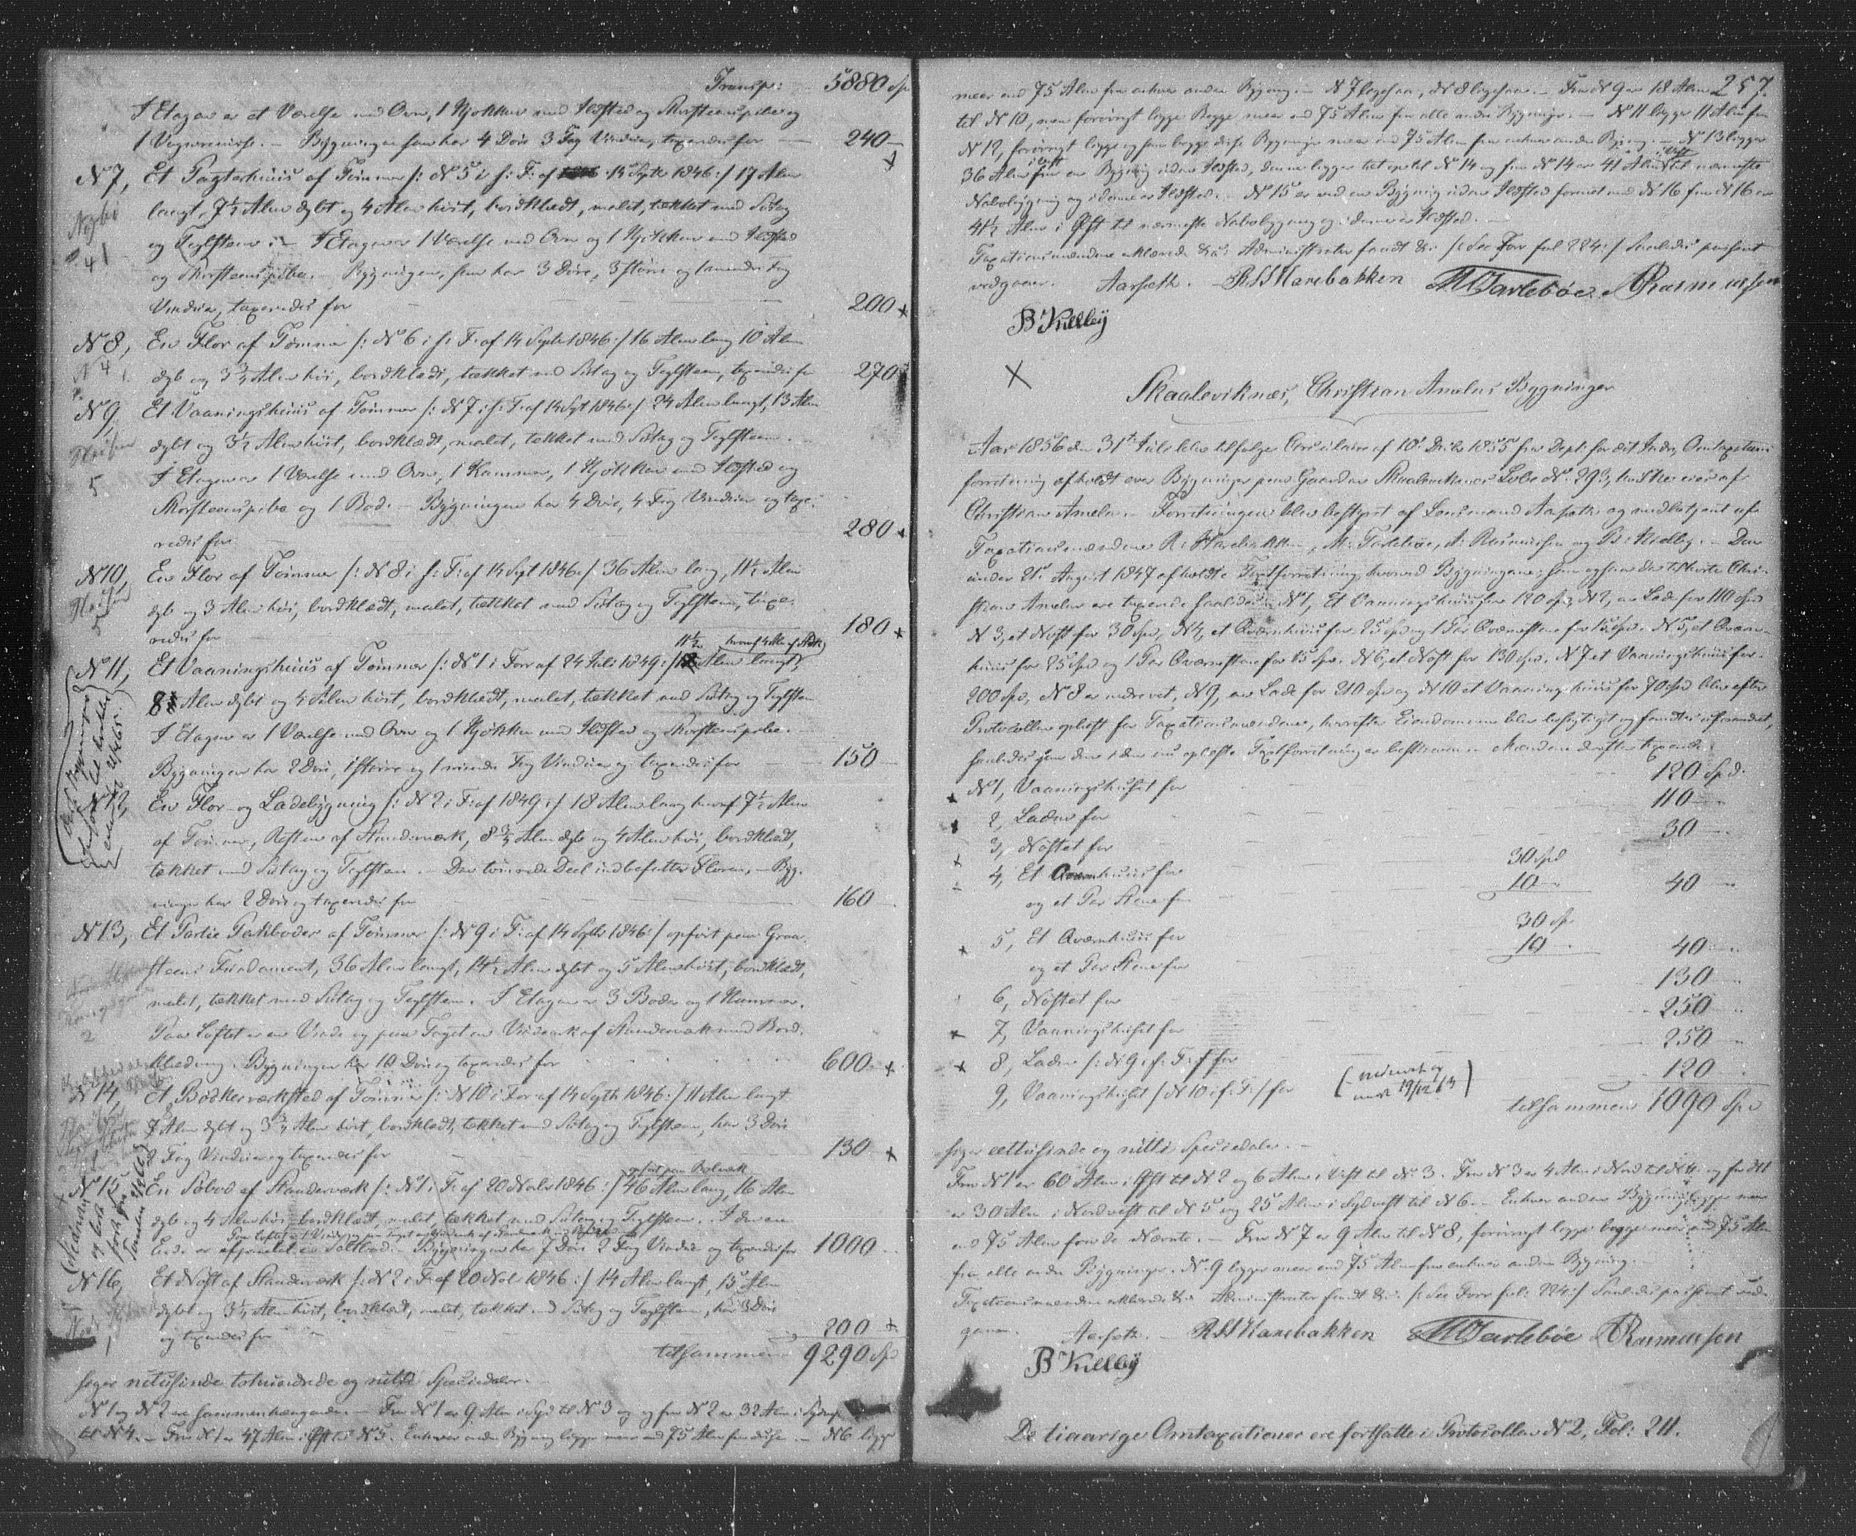 Transp: 5880 Sp
I Etagen er et Værelse med Ovn, 1 Kjøkken med Ildsted og Skorsteenspibe og
1 Bygningen som har 4 Døre 3 Fag Vinduer, taxeredes for 240
N 7, Et Pagterhuus af Tømmer /: N 5 i f: F: af 14 Sptb 1846 :/ 17 Alen
langt, 7½ Alen dybt og 4 Alen høit, bordklædt, malet, tækket med Sutag
og Teglsteen. I Etagen er 1 Værelse med Ovn og 1 Kjøkken med Ildsted
og Skorsteenspibe. Bygningen, som har 3 Døre, 3 større og 1 mindre Fag
Vinduer, taxeredes for 200
N 8, En Flor af Tømmer /: N 6 i f: F: af 14 Sptb 1846 :/ 16 Alen lang 10 Alen
dyb og 3¾ Alen høi, bordklædt, tækket med Sutag og Teglsteen, taxeredes for 270
N 9, Et Vaaningshuus af Tømmer /: N 7 i f: F: af 14 Spt 1846 :/ 24 Alen langt, 13 Alen
dybt og 3½ Alen høit, bordklædt, malet, tækket med Sutag og Teglsteen.
I Etagen er 1 Værelse med Ovn, 1 Kammer, 1 Kjøkken med Ildsted og
Skorsteenspibe og 1 Bod. Bygningen har 4 Døre, 4 Fag Vinduer og taxe-
redes for 280
N 10, En Flor af Tømmer /: N 8 i f: F: af 14 Spt 1846 :/ 36 Alen lang, 11½ Alen
dyb og 3 Alen høi, bordklædt, malet, tækket med Sutag og Teglsteen, taxe-
redes for 180
N 11, Et Vaaningshuus af Tømmer /: N 1 i Forr af 24 Juli 1849 :/ 11½ Alen langt
8 Alen dybt og 4 Alen høit, bordklædt, malet, tækket med Sutag og Teglsteen
I Etagen er 1 Værelse med Ovn og 1 Kjøkken med Ildsted og Skorsteenspibe.
Bygningen har 2 Døre, 1 større og 1 mindre Fag Vinduer og taxeredes for 150
N 12, En Flor og Ladebygning /: N 2 i F: af 1849 :/ 18 Alen lang hvoraf 7½ Alen
af Tømmer, Resten af Standerværk, 8¾ Alen dyb og 4 Alen høi, bordklædt,
tækket med Sutag og Teglsteen. Den tømrede Deel indbefatter Floren, Byg-
ningen har 2 Døre og taxeredes for 160
N 13, Et Partie Pakboder af Tømmer /: N 9 i F: af 14 Sptb 1846 :/ opført paa Graa-
steens Fundament, 36 Alen langt, 14½ Alen dybt og 5 Alen høit, bordklædt,
malet, tækket med Sutag og Teglsteen. I Etagen er 3 Boder og 1 Kammer.
Paa Loftet er en Vinde og paa Taget en af Standerværk med Bord-
klædning. Bygningen har 10 Døre og taxeredes for 600
N 14, Et Bødkerværksted af Tømmer /: N 10 i Forr af 14 Sptb 1846 :/ 11 Alen langt
7 Alen dybt og 3¾ Alen høit, bordklædt, tækket med Sutag og Teglsteen, har 3 Døre
2 Fag Vinduer og taxeredes for 130
N 15, En Søbod af Standerværk /: N 1 i F: af 20 Novbr 1846 :/ opført paa Bolværk 46 Alen lang, 16 Alen
dyb og 4 Alen høi, bordklædt, malet, tækket med Sutag og Teglsteen. I den ene
Ende er et Saltlad. Bygningen har 7 Døre 2 Fag Vinduer og taxeredes for 1000
N 16, Et Nøst af Standerværk /: N 2 i F: af 20 Nov 1846 :/ 14 Alen langt, 15 Alen
dybt og 3½ Alen høit, bordklædt, malet, tækket med Sutag og Teglsteen, har 3 Døre
og taxeredes for 200
tilsammen 9290 Spd
siger nitusinde tohundrede og nitti Speciedaler.
N 1 og N 2 ere sammenhængende. Fra N 1 er 9 Alen i Syd til N 3 og fra N 2 er 32 Alen i
til N 4. Fra N 1 er 47 Alen i Øst til N 5. Enhver anden Bygning ligger meer end 75 Alen fra disse. N 6 ligger
257.
meer end 75 Alen fra enhver anden Bygning. N 7 ligesaa, N 8 ligesaa. Fra N 9 er 18 Alen
til N 10, men forøvrigt ligge Begge meer end 75 Alen fra alle andre Bygninger. N 11 ligger 11 Alen fra
N 12, forøvrigt ligge disse Bygninger meer end 75 Alen fra enhver anden Bygning. N 13 ligger
36 Alen fra en Bygning uden Ildsted, denne ligger tæt op til N 14 og fra N 14 er 41 Alen til nærmeste
Nabobygning og i denne er Ildsted. N 15 er ved en Bygning uden Ildsted forenet med N 16 fra N 16 er
41½ Alen i Øst til nærmeste Nabobygning og i denne er Ildsted.
Taxationsmændene erklærede &c: Administrator fandt &c: /: See Forr fol 224 :/ Saaledes passeret
vedgaaer. Aarseth. R H Marebakken M Tarlebøe A Rasmussen
B Kielby
Skaaleviknæs, Christian Amelns Bygninger
Aar 1856 den 31te Juli blev tilfølge Circulaire af 10de Decbr 1855 fra Dept: for det Indre Omtaxations-
forretning afholdt over Bygninger paa Gaarden Skaaleviknæs Løbe N: 293, hvilke eies af
Christian Ameln. Forretningen blev bestyret af Lensmand Aarseth og medbetjent af
Taxationsmændene R: Marebakken, M: Tarlebøe, A: Rasmussen og B: Kielby. Den
under 21de August 1847 afholdte Taxtforretning, hvorved Bygningerne, som ogsaa da tilhørte Chri-
stian Ameln ere taxerede saaledes: N 1, Et Vaaningshuus for 120 Spd, N 2, en Lade for 110 Spd
N 3, et Nøst for 30 Spd, N 4, et Qværnhuus for 25 Spd og 1 Par Qværnstene for 15 Spd. N 5, et Qværn-
huus for 25 Spd og 1 Par Qværnstene for 15 Spd. N 6, et Nøst for 130 Spd. N 7 et Vaaningshuus for
200 Spd, N 8 er nedrevet, N 9, en Lade for 210 Spd og N 10 et Vaaningshuus for 70 Spd blev efter
Protocollen oplæst for Taxationsmændene, hvorefter Eiendommene blev besigtiget og fandtes uforandret,
saaledes som den i den nu oplæste Taxtforretning er beskreven. Mændene derefter taxerede:
N 1, Vaaningshuset for 120 Spd.
2, Laden for 110
3, Nøstet for 30
4, Et Qværnhuus for 30 Spd
og et Par Stene for 10 40
5, Et Qværnhuus for 30 Sp
og et Par Stene for 10 40
6, Nøstet for 130
7, Vaaningshuset for 250
8, Laden /: N 9 i f: F: :/ for 250
9, Vaaningshuset /: N 10 i f: F: :/ for (nedrevet 19/12 63) 120
tilsammen 1090 Spd
siger ettusinde og nitti Speciedaler.
Fra N 1 er 60 Alen i Øst til N 2 og 6 Alen i Vest til N: 3. Fra N 3 er 4 Alen i Nord til N 4 og fra dette
er 30 Alen i Nordvest til N 5 og 25 Alen i Sydvest til N 6. Enhver anden Bygning ligger meer
end 75 Alen fra de Nævnte. Fra N 7 er 9 Alen til N 8, forøvrigt ligge begge meer end 75 Alen
fra alle andre Bygninger. N: 9 ligger meer end 75 Alen fra enhver anden Bygning.
Taxationsmændene erklærede &c: Administrator fandt &c: /: See Forr fol: 224 :/ Saaledes passeret ved-
gaaer. Aarseth. R H Marebakken M Tarlebøe A Rasmussen
B Kielby
De tiaarige Omtaxationer ere fortsatte i Protocollen N 2, Fol: 211.